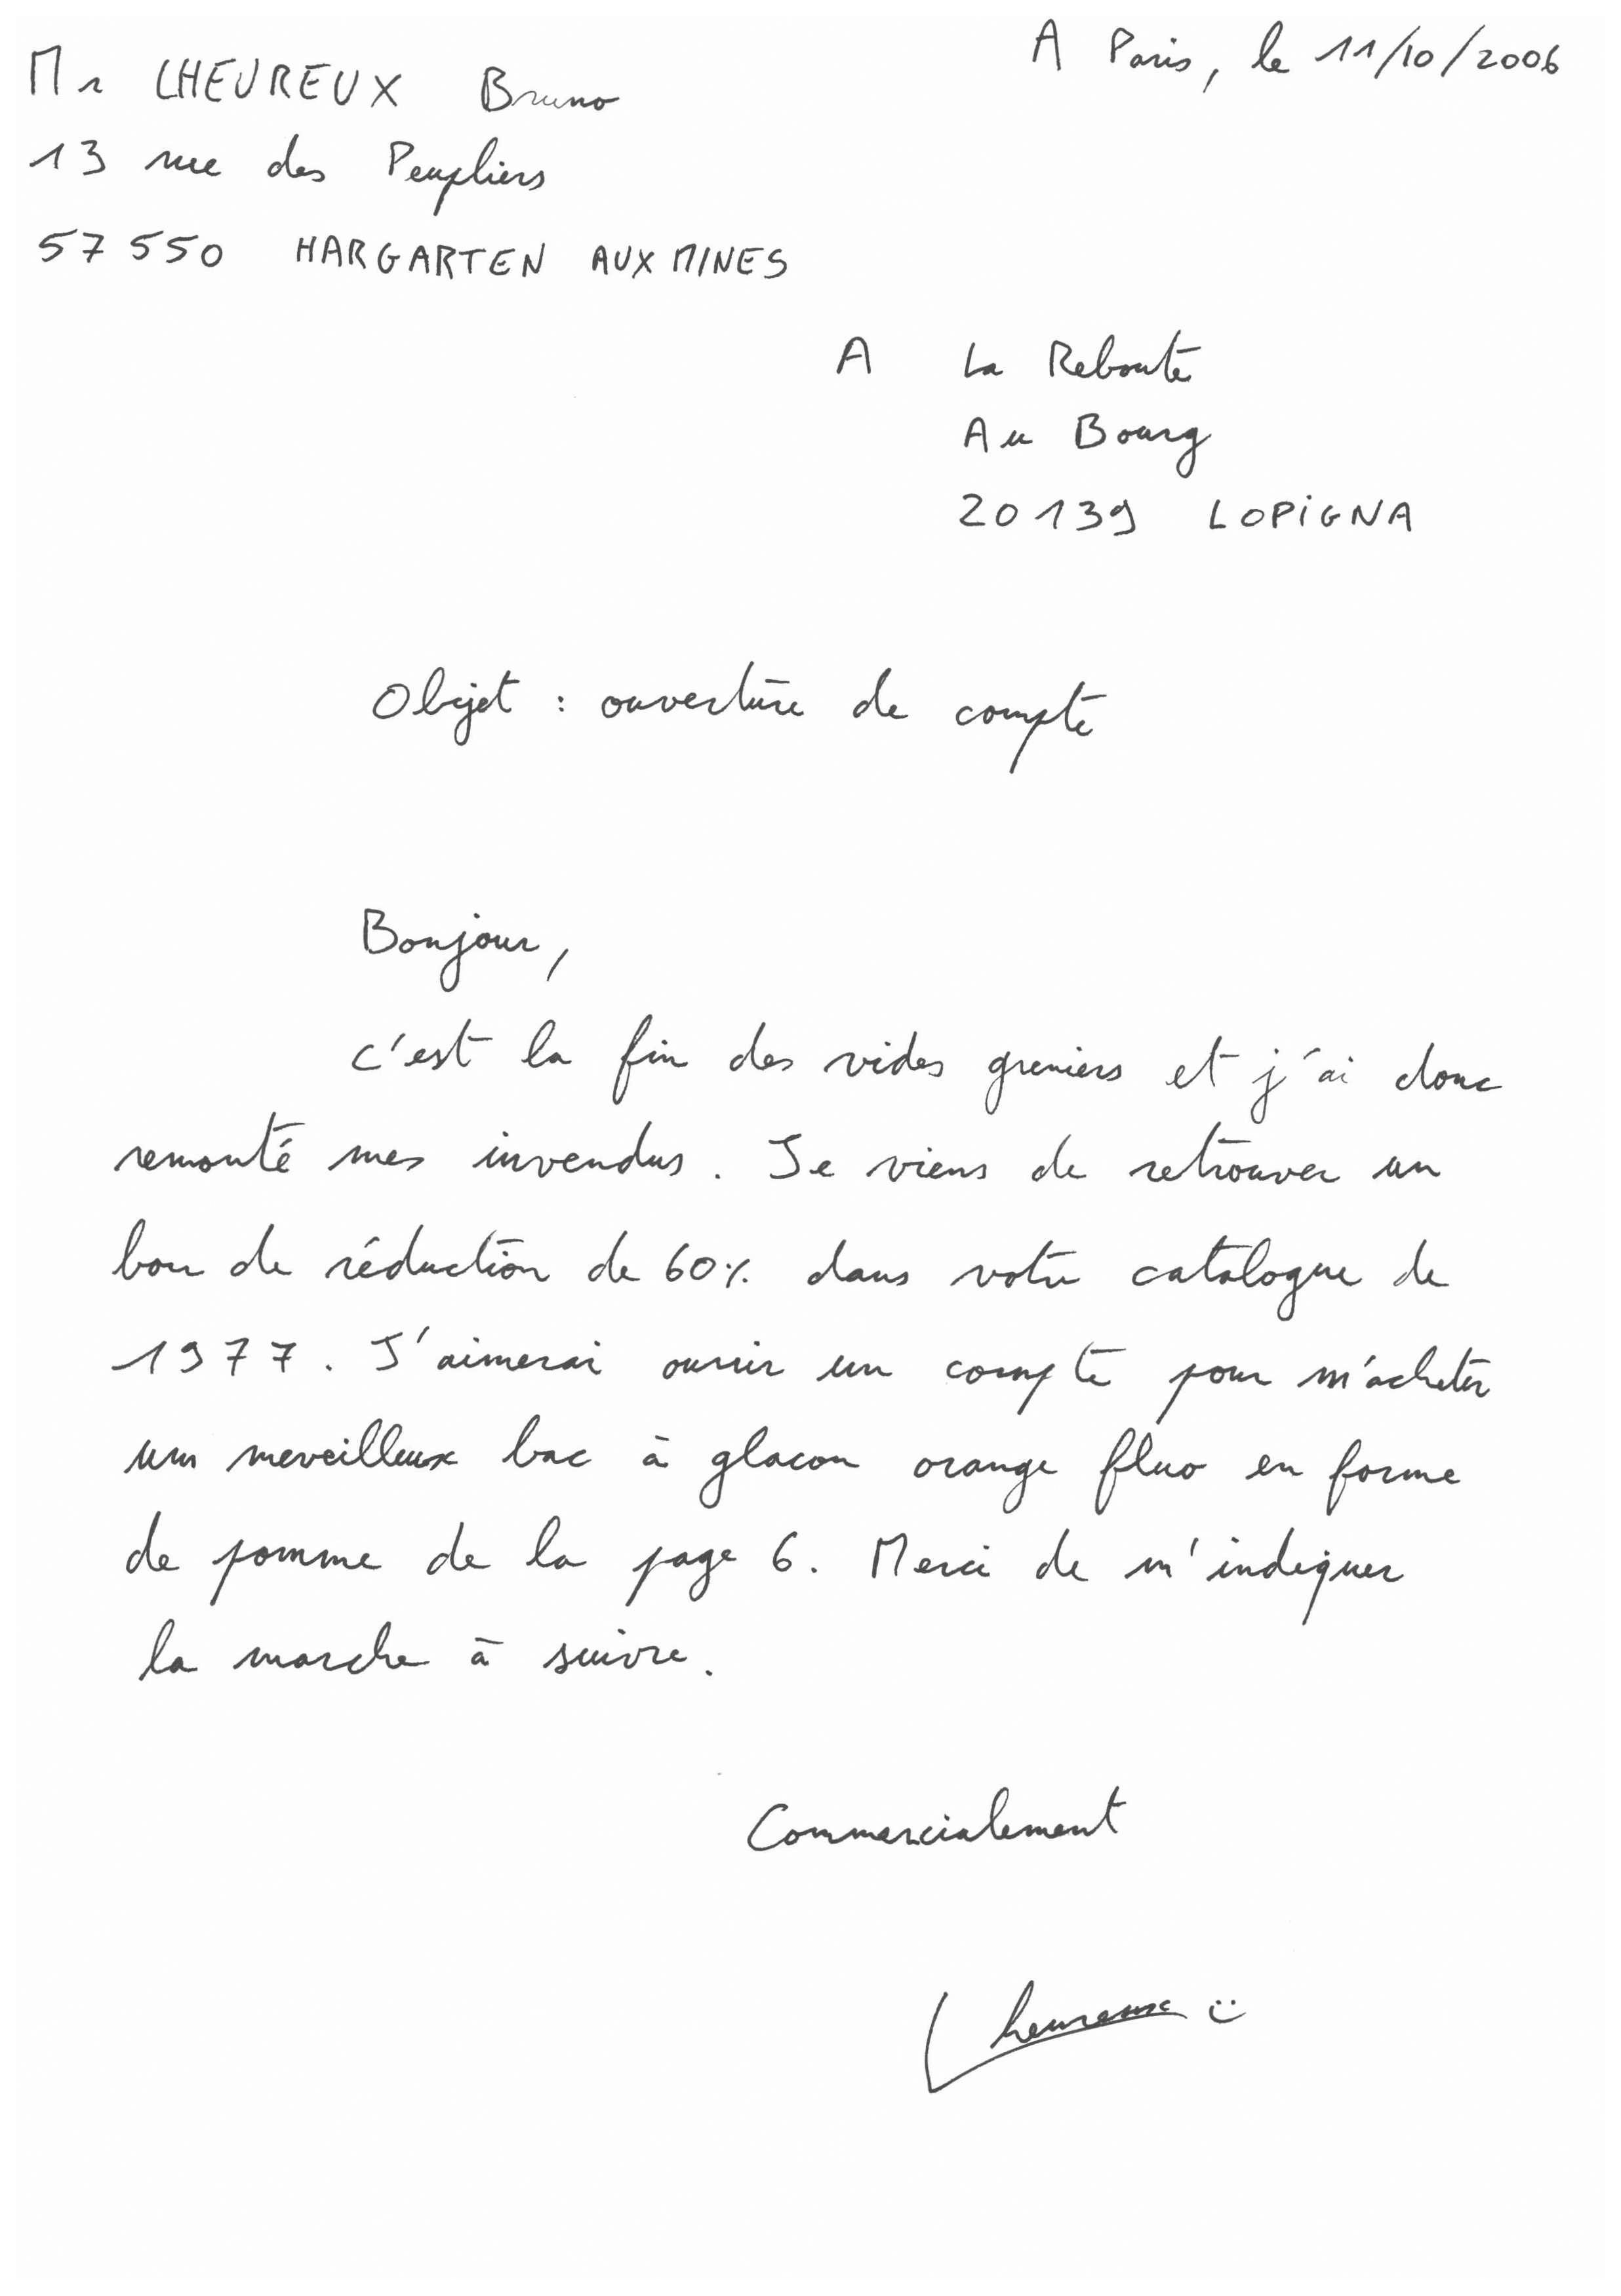 A Paris, le 11/10/2006
Mr LHEUREUX Bruno
13 rue des Peupliers
57550 HARGARTEN AUX MINES
A La Reboute
Au Bourg
20139 LOPIGNA
Objet : ouverture de compte
Bonjour,
c'est la fin des vides greniers et j'ai donc
remonté mes invendus. Je viens de retrouver un
bon de réduction de 60% dans votre catalogue de
1977. J'aimerai ouvrir un compte pour m'acheter
un merveilleux bac à glacon orange fluo en forme
de pomme de la page 6. Merci de m'indiquer
la marche à suivre.
Commercialement
Lheureux :)